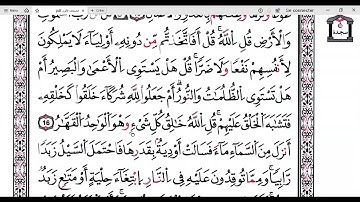 Se connecter
وَالْأَرْضِ قُلِ اللَّهُ قُلْ أَفَاتَّخَذْتُم مِّن دُونِهِ أَوْلِيَاءَ لَا يَمْلِكُونَ
لِأَنفُسِهِمْ نَفْعًا وَلَا ضَرًّا قُلْ هَلْ يَسْتَوِي الْأَعْمَىٰ وَالْبَصِيرُ أَمْ
هَلْ تَسْتَوِي الظُّلُمَاتُ وَالنُّورُ أَمْ جَعَلُوا لِلَّهِ شُرَكَاءَ خَلَقُوا كَخَلْقِهِ
فَتَشَابَهَ الْخَلْقُ عَلَيْهِمْ قُلِ اللَّهُ خَالِقُ كُلِّ شَيْءٍ وَهُوَ الْوَاحِدُ الْقَهَّارُ 16
أَنزَلَ مِنَ السَّمَاءِ مَاءً فَسَالَتْ أَوْدِيَةٌ بِقَدَرِهَا فَاحْتَمَلَ السَّيْلُ زَبَدًا
رَّابِيًا وَمِمَّا تُوقِدُونَ عَلَيْهِ فِي النَّارِ ابْتِغَاءَ حِلْيَةٍ أَوْ مَتَاعٍ زَبَدٌ